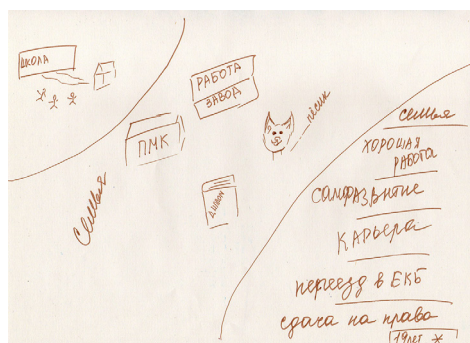 ШКОЛА
РАБОТА
ЗАВОД
ПМК
пёсик
Семья
ДИПЛОМ
семья
ХОРОШАЯ
РАБОТА
САМРАЗВИТИЕ
КАРЬЕРА
переезд в ЕКБ
сдача на права
19 лет *